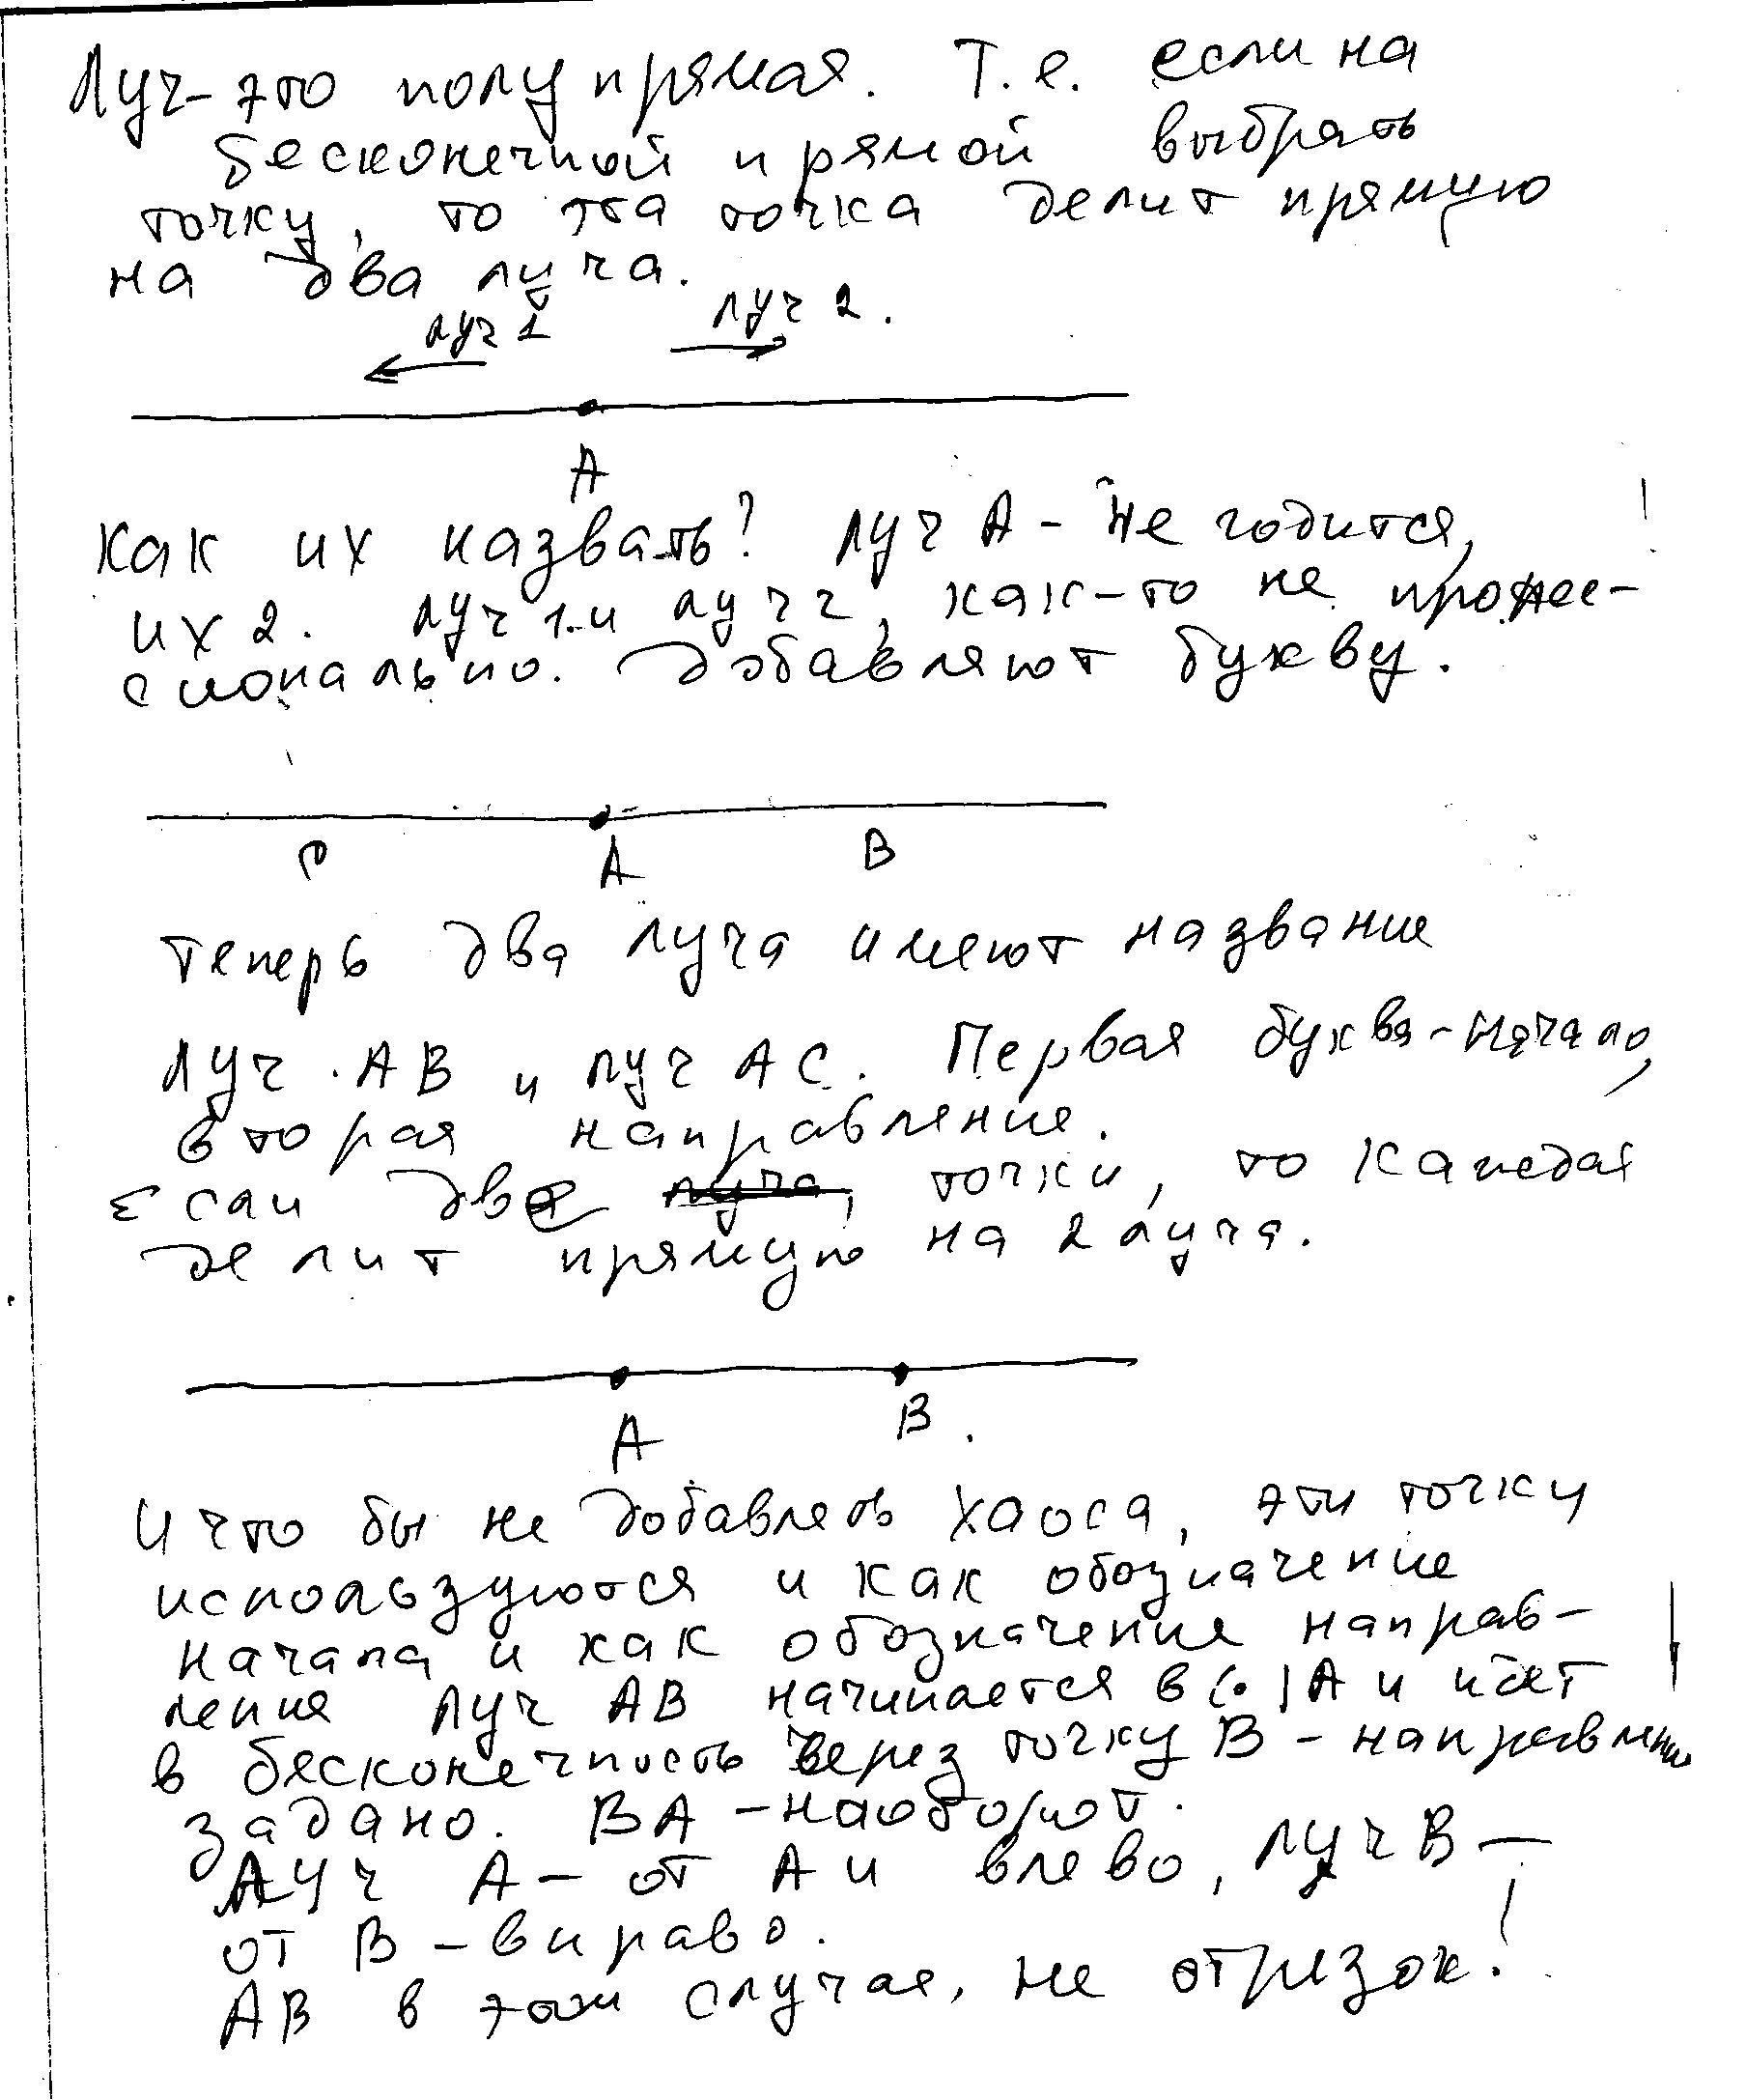 Луч - это полупрямая. Т.е. если на
бесконечной прямой выбрать
точку, то эта точка делит прямую
на два луча.
луч 1 луч 2.
A
Как их назвать? луч A - не годится,
их 2. луч 1 и луч 2, как-то не профес-
сионально. Добавляют букву.
C A B
Теперь два луча имеют название
Луч AB и луч AC. Первая буква - начало,
вторая направление.
Если две точки, то каждая
делит прямую на 2 луча.
A B.
И что бы не добавлять хаоса, эти точки
используются и как обозначение
начала и как обозначение направ-
ления луч AB начинается в (·) A и идет
в бесконечность через точку B - направление
задано. BA - наоборот.
Луч A - от A и влево, луч B -
от B - вправо.
AB в этом случае, не отрезок!